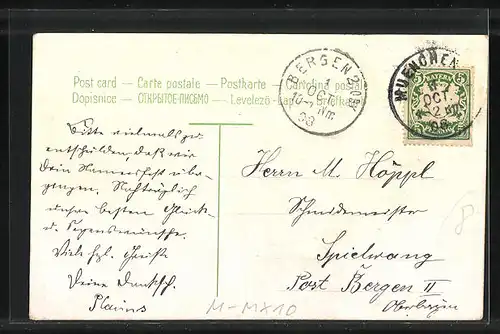 Post card — Carte postale — Postkarte — Cartolina postal
Dopisnice — ОТКРЫТОЕ ПИСЬМО — Levelező-Lap —
BERGEN 2
1 OCT
MUENCHEN
OCT
BAYERN
5
Bitte vielmals zu
entschuldigen, daß wir
Dein Namensfest über-
gangen. Nachträglich
unsere besten Glück-
u. Segenswünsche.
Viele hzl. Grüße
Deine dankb.
Herrn M. Höppl
Schneidermeister
Spielwang
Post Bergen II
Oberbayern
8
M-MX10